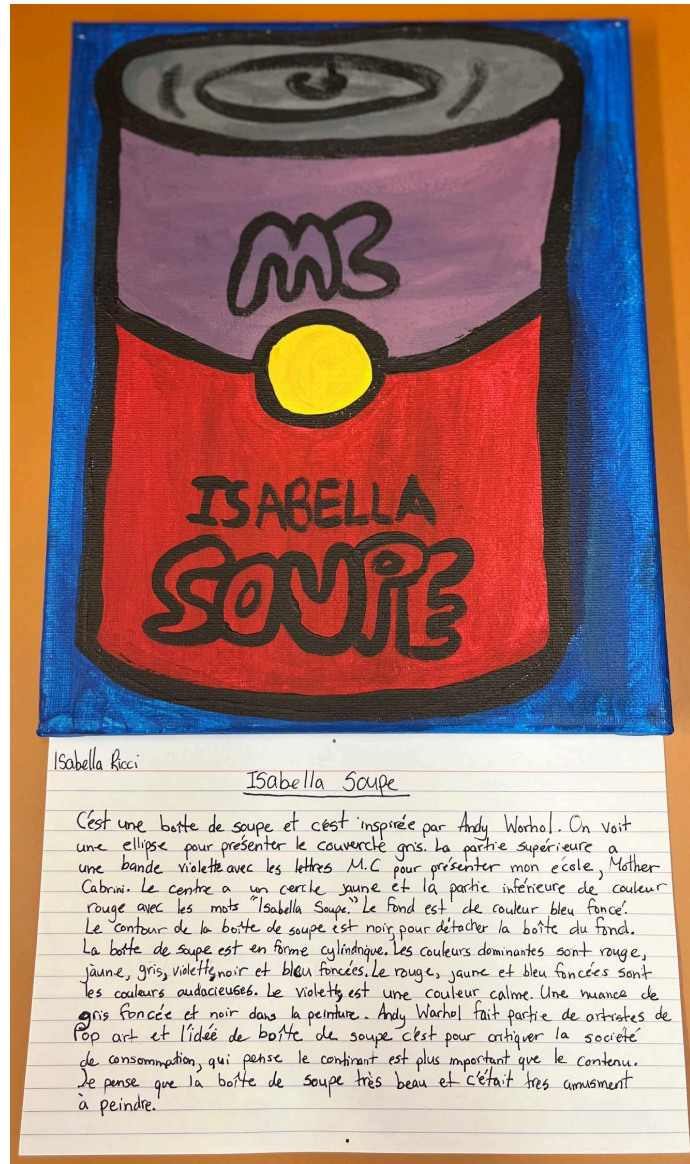 MC
ISABELLA
SOUPE
Isabella Ricci
Isabella Soupe
C'est une boîte de soupe et c'est inspirée par Andy Worhol. On voit
une ellipse pour présenter le couvercle gris. La partie supérieure a
une bande violette avec les lettres M.C pour présenter mon école, Mother
Cabrini. Le centre a un cercle jaune et la partie inférieure de couleur
rouge avec les mots "Isabella Soupe." Le fond est de couleur bleu foncé.
Le contour de la boîte de soupe est noir pour détacher la boîte du fond.
La boîte de soupe est en forme cylindrique. Les couleurs dominantes sont rouge,
jaune, gris, violette, noir et bleu foncées. Le rouge, jaune et bleu foncées sont
les couleurs audacieuses. Le violette est une couleur calme. Une nuance de
gris foncée et noir dans la peinture. Andy Warhol fait partie de artristes de
Pop art et l'idée de boîte de soupe c'est pour critiquer la société
de consommation, qui pense le continant est plus important que le contenu.
Je pense que la boîte de soupe très beau et c'était très amusment
à peindre.